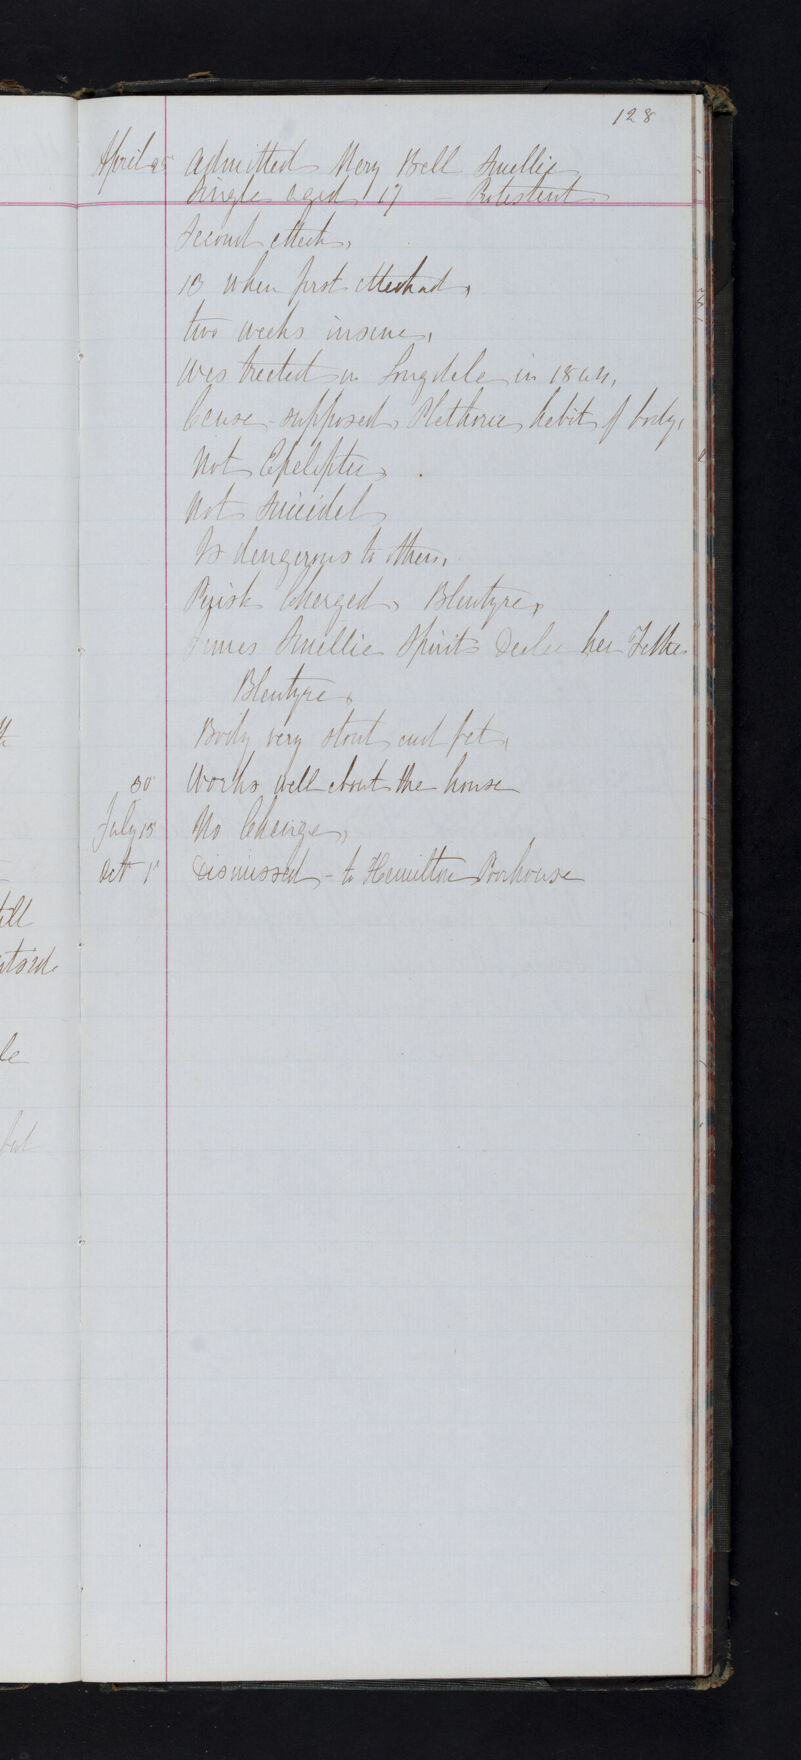 128
April 25 Admitted Mary Bell Smellie
Single aged 17 - Protestant
Second attack.
13 when first attacked.
two weeks insane.
was treated in Longdale in 1864.
Cause supposed Plethoric habit of body.
Not Epileptic
Not Suicidal
Is dangerous to others.
Parish Charged, Blantyre.
James Smellie Spirit Dealer her Father
Blantyre.
Body very stout and fat.
30 Works well about the house
July 15 No Change.
Oct 1 Dismissed - to Hamilton Poorhouse